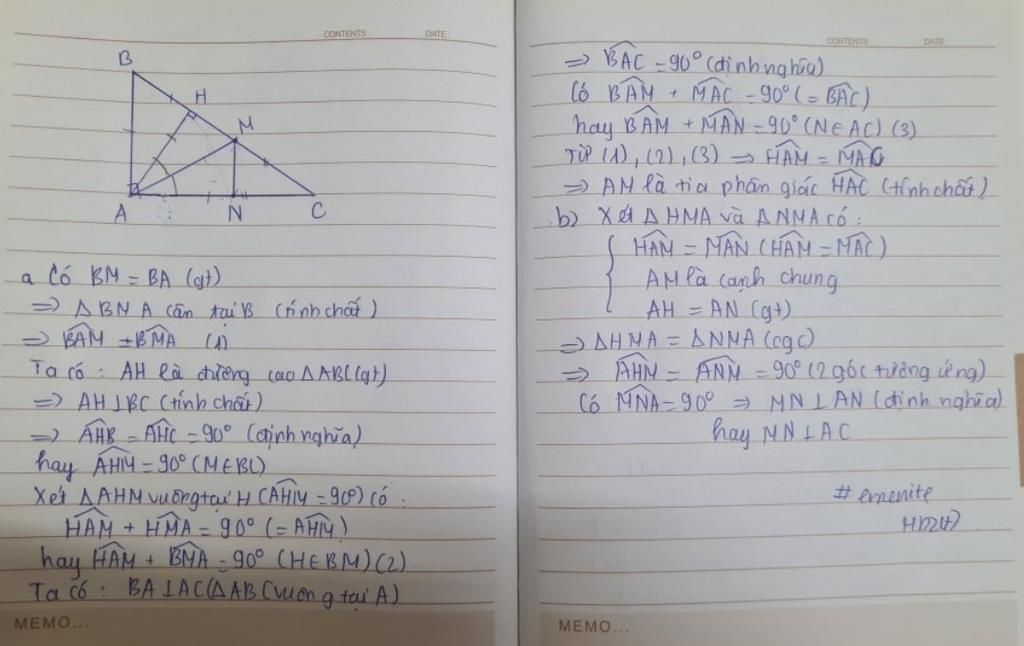 CONTENTS : DATE :
B
H
M
A N C
a Có BM = BA (gt)
=> ΔBMA cân tại B (tính chất)
=> BAM = BMA (1)
Ta có : AH là đường cao ΔABC (gt)
=> AH ⊥ BC (tính chất)
=> AHB = AHC = 90° (định nghĩa)
hay AHM = 90° (M ∈ BC)
Xét ΔAHM vuông tại H (AHM = 90°) có :
HAM + HMA = 90° (= AHM)
hay HAM + BMA = 90° (H ∈ BM) (2)
Ta có : BA ⊥ AC (ΔABC vuông tại A)
MEMO...
CONTENTS : DATE :
=> BAC = 90° (định nghĩa)
Có BAM + MAC = 90° (= BAC)
hay BAM + MAN = 90° (N ∈ AC) (3)
Từ (1), (2), (3) => HAM = MAC
=> AM là tia phân giác HAC (tính chất)
b) Xét ΔHMA và ΔNMA có :
HAM = MAN (HAM = MAC)
AM là cạnh chung
AH = AN (gt)
=> ΔHMA = ΔNMA (cgc)
=> AHM = ANM = 90° (2 góc tương ứng)
Có MNA = 90° => MN ⊥ AN (định nghĩa)
hay MN ⊥ AC
MEMO...